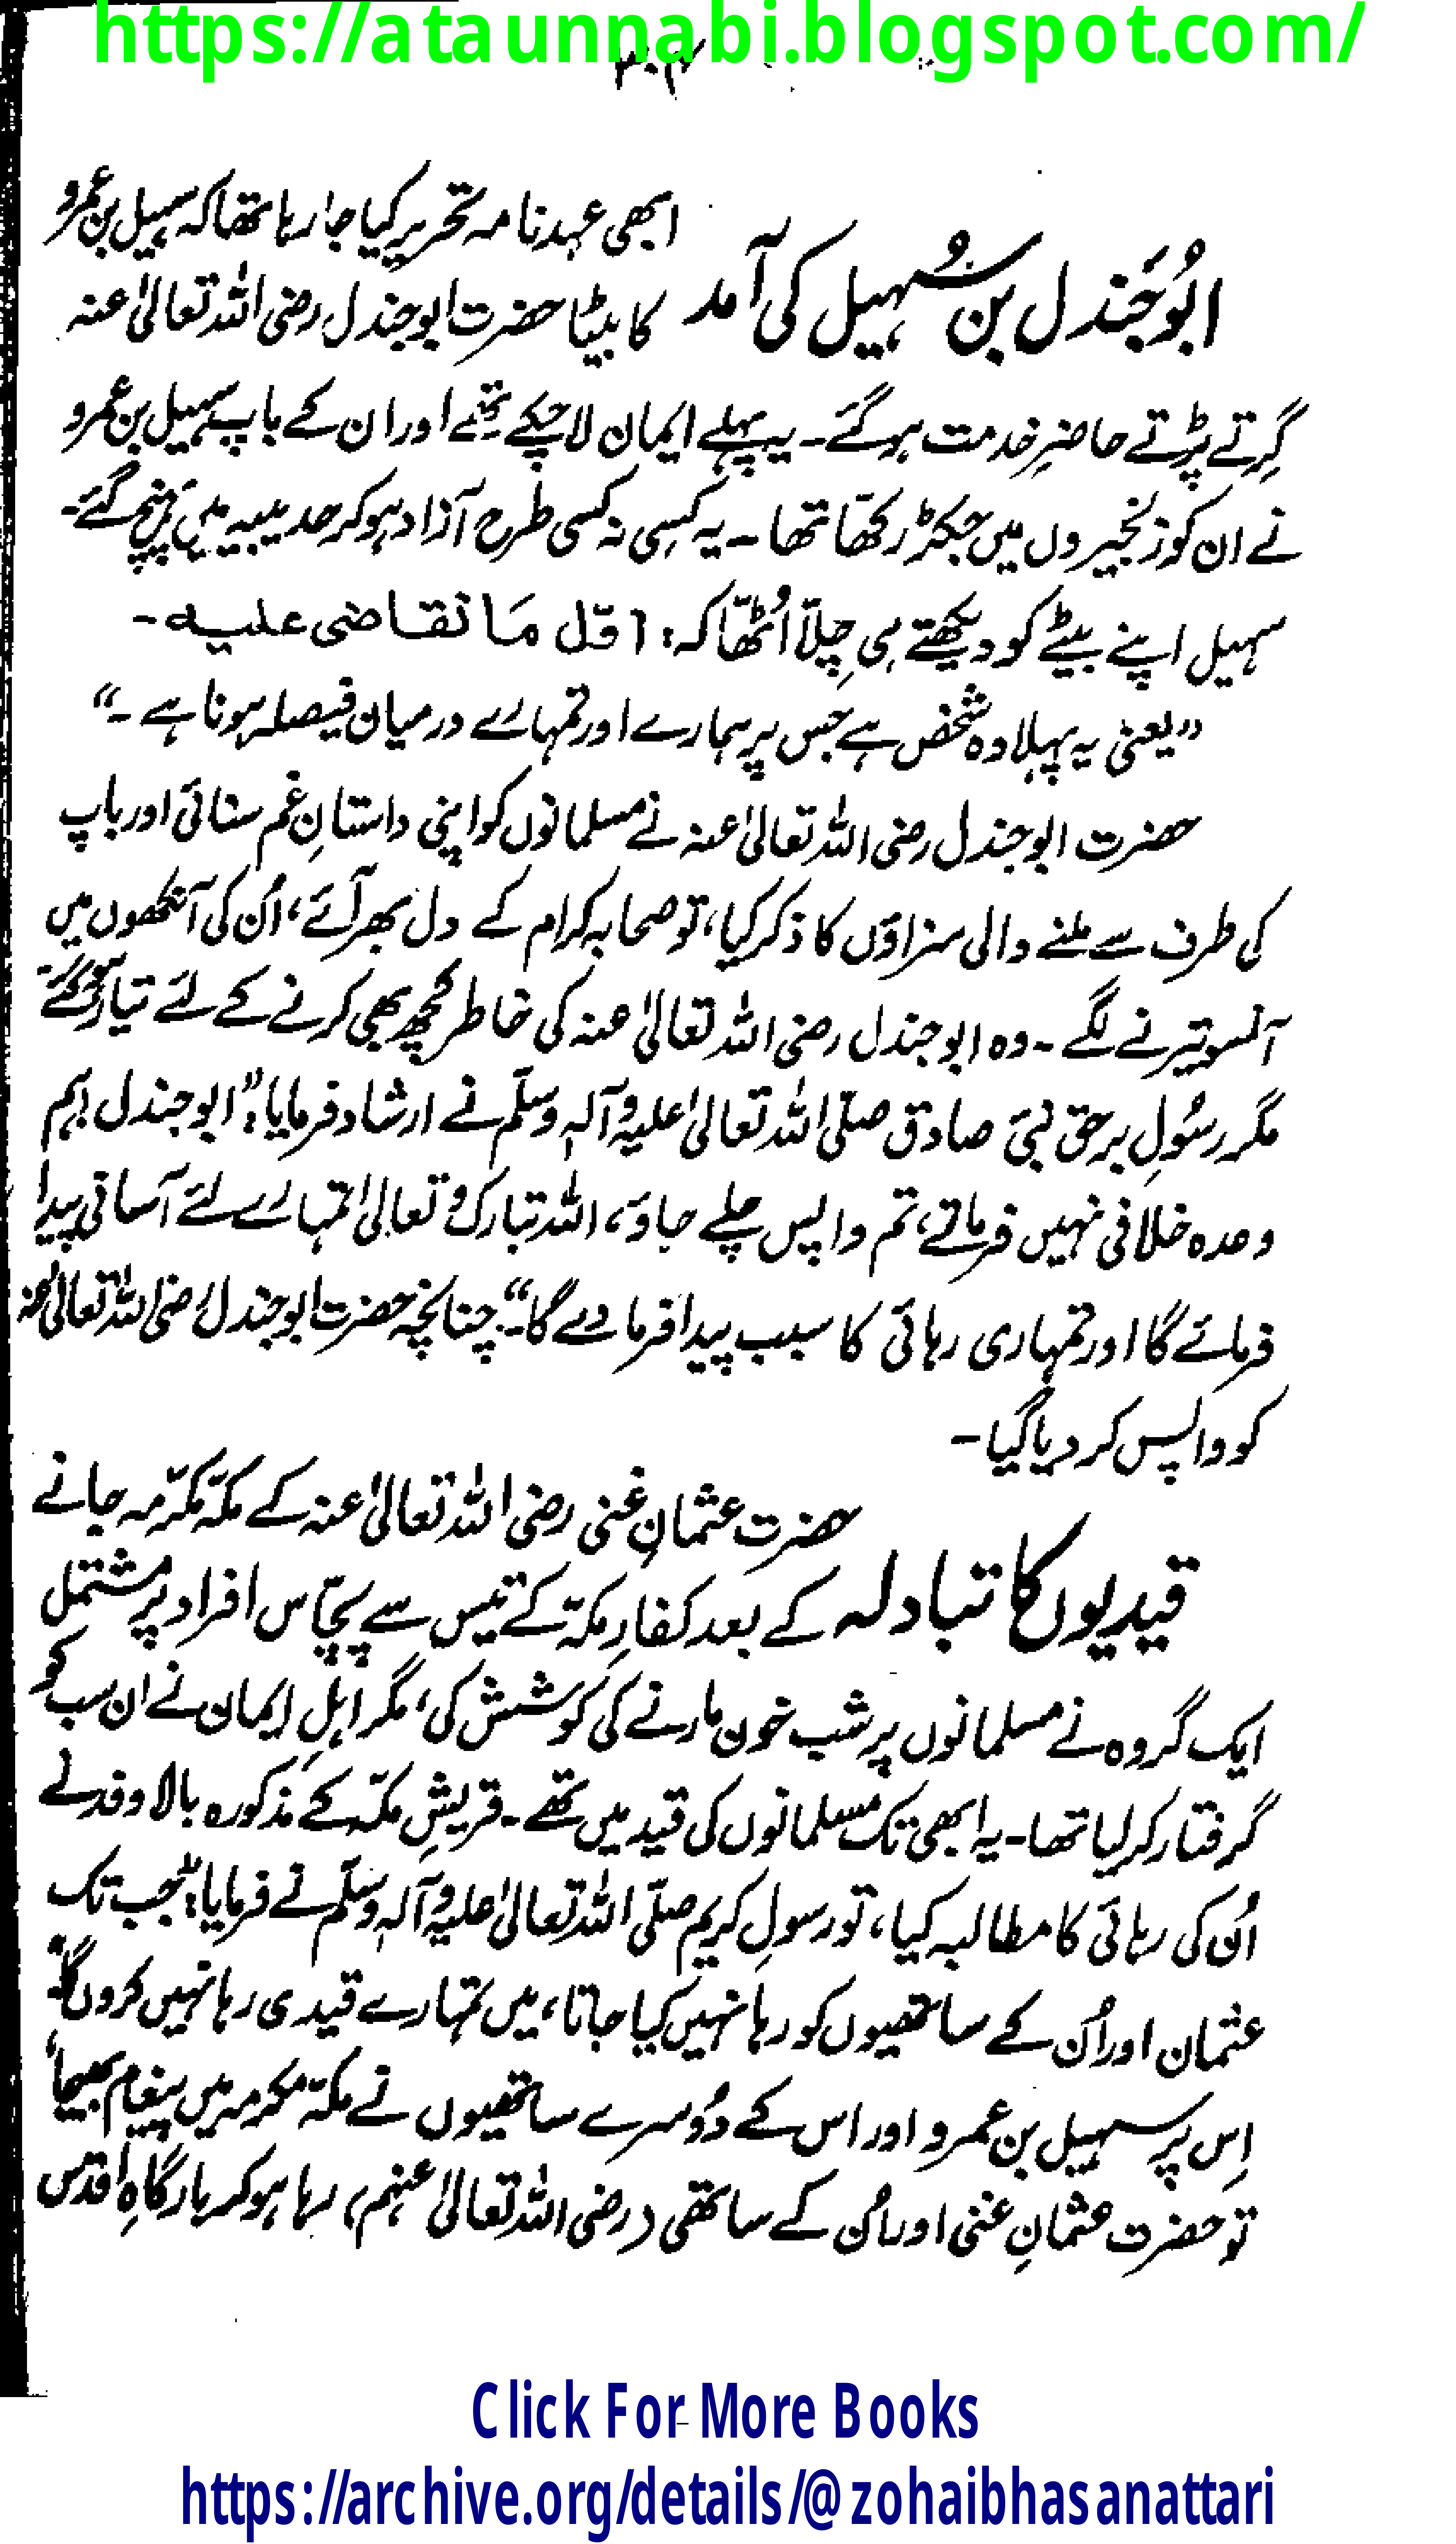 https://ataunnabi.blogspot.com/
۳۰۴
ابُوجَندل بن سُہیل کی آمد
ابھی عہدنامہ تحریر کیا جا رہا تھا کہ سہیل بن عمرو
کا بیٹا حضرت ابوجندل رضی اللہ تعالیٰ عنہ
گِرتے پڑتے حاضرِ خدمت ہوگئے۔ یہ پہلے ایمان لا چکے تھے اور ان کے باپ سہیل بن عمرو
نے ان کو زنجیروں میں جکڑ رکھّا تھا۔ یہ کسِی نہ کسی طرح آزاد ہوکر حدیبیہ میں پہنچ گئے۔
سہیل اپنے بیٹے کو دیکھتے ہی چِلّا اُٹھّا کہ: اقل مَا نقاضی علیہ۔
”یعنی یہ پہلا وہ شخص ہے جس پر ہمارے اور تمہارے درمیان فیصلہ ہونا ہے۔“
حضرت ابوجندل رضی اللہ تعالیٰ عنہ نے مسلمانوں کو اپنی داستانِ غم سنائی اور باپ
کی طرف سے ملنے والی سزاؤں کا ذکر کیا، تو صحابہ کرام کے دل بھر آئے، اُن کی آنکھوں میں
آنسو تیرنے لگے۔ وہ ابوجندل رضی اللہ تعالیٰ عنہ کی خاطر کچھ بھی کرنے کے لئے تیار ہوگئے۔
مگر رسُولِ برحق نبئ صادق صلّی اللہ تعالیٰ علیہ وآلہٖ وسلّم نے ارشاد فرمایا: ”ابوجندل! ہم
وعدہ خلافی نہیں فرماتے، تم واپس چلے جاؤ، اللہ تبارک و تعالیٰ تمہارے لئے آسانی پیدا
فرمائے گا اور تمہاری رہائی کا سبب پیدا فرما دے گا۔“ چنانچہ حضرت ابوجندل رضی اللہ تعالیٰ عنہ
کو واپس کر دیا گیا۔
قیدیوں کا تبادلہ
حضرت عثمانِ غنی رضی اللہ تعالیٰ عنہ کے مکّہ مکرّمہ جانے
کے بعد کفارِ مکّہ کے تیس سے پچّاس افراد پر مشتمل
ایک گروہ نے مسلمانوں پر شب خون مارنے کی کوشش کی، مگر اہلِ ایمان نے ان سب کو
گرفتار کر لیا تھا۔ یہ ابھی تک مسلمانوں کی قید میں تھے۔ قریشِ مکّہ کے مذکورہ بالا وفد نے
اُن کی رہائی کا مطالبہ کیا، تو رسولِ کریم صلّی اللہ تعالیٰ علیہ وآلہٖ وسلّم نے فرمایا: ”جب تک
عثمان اور اُن کے ساتھیوں کو رہا نہیں کیا جاتا، میں تمہارے قیدی رہا نہیں کروں گا۔“
اِس پر سہیل بن عمرو اور اس کے دُوسرے ساتھیوں نے مکّہ مکرمہ میں پیغام بھیجا،
تو حضرت عثمانِ غنی اور اُن کے ساتھی (رضی اللہ تعالیٰ عنہم) رہا ہوکر بارگاہِ اقدس
Click For More Books
https://archive.org/details/@zohaibhasanattari